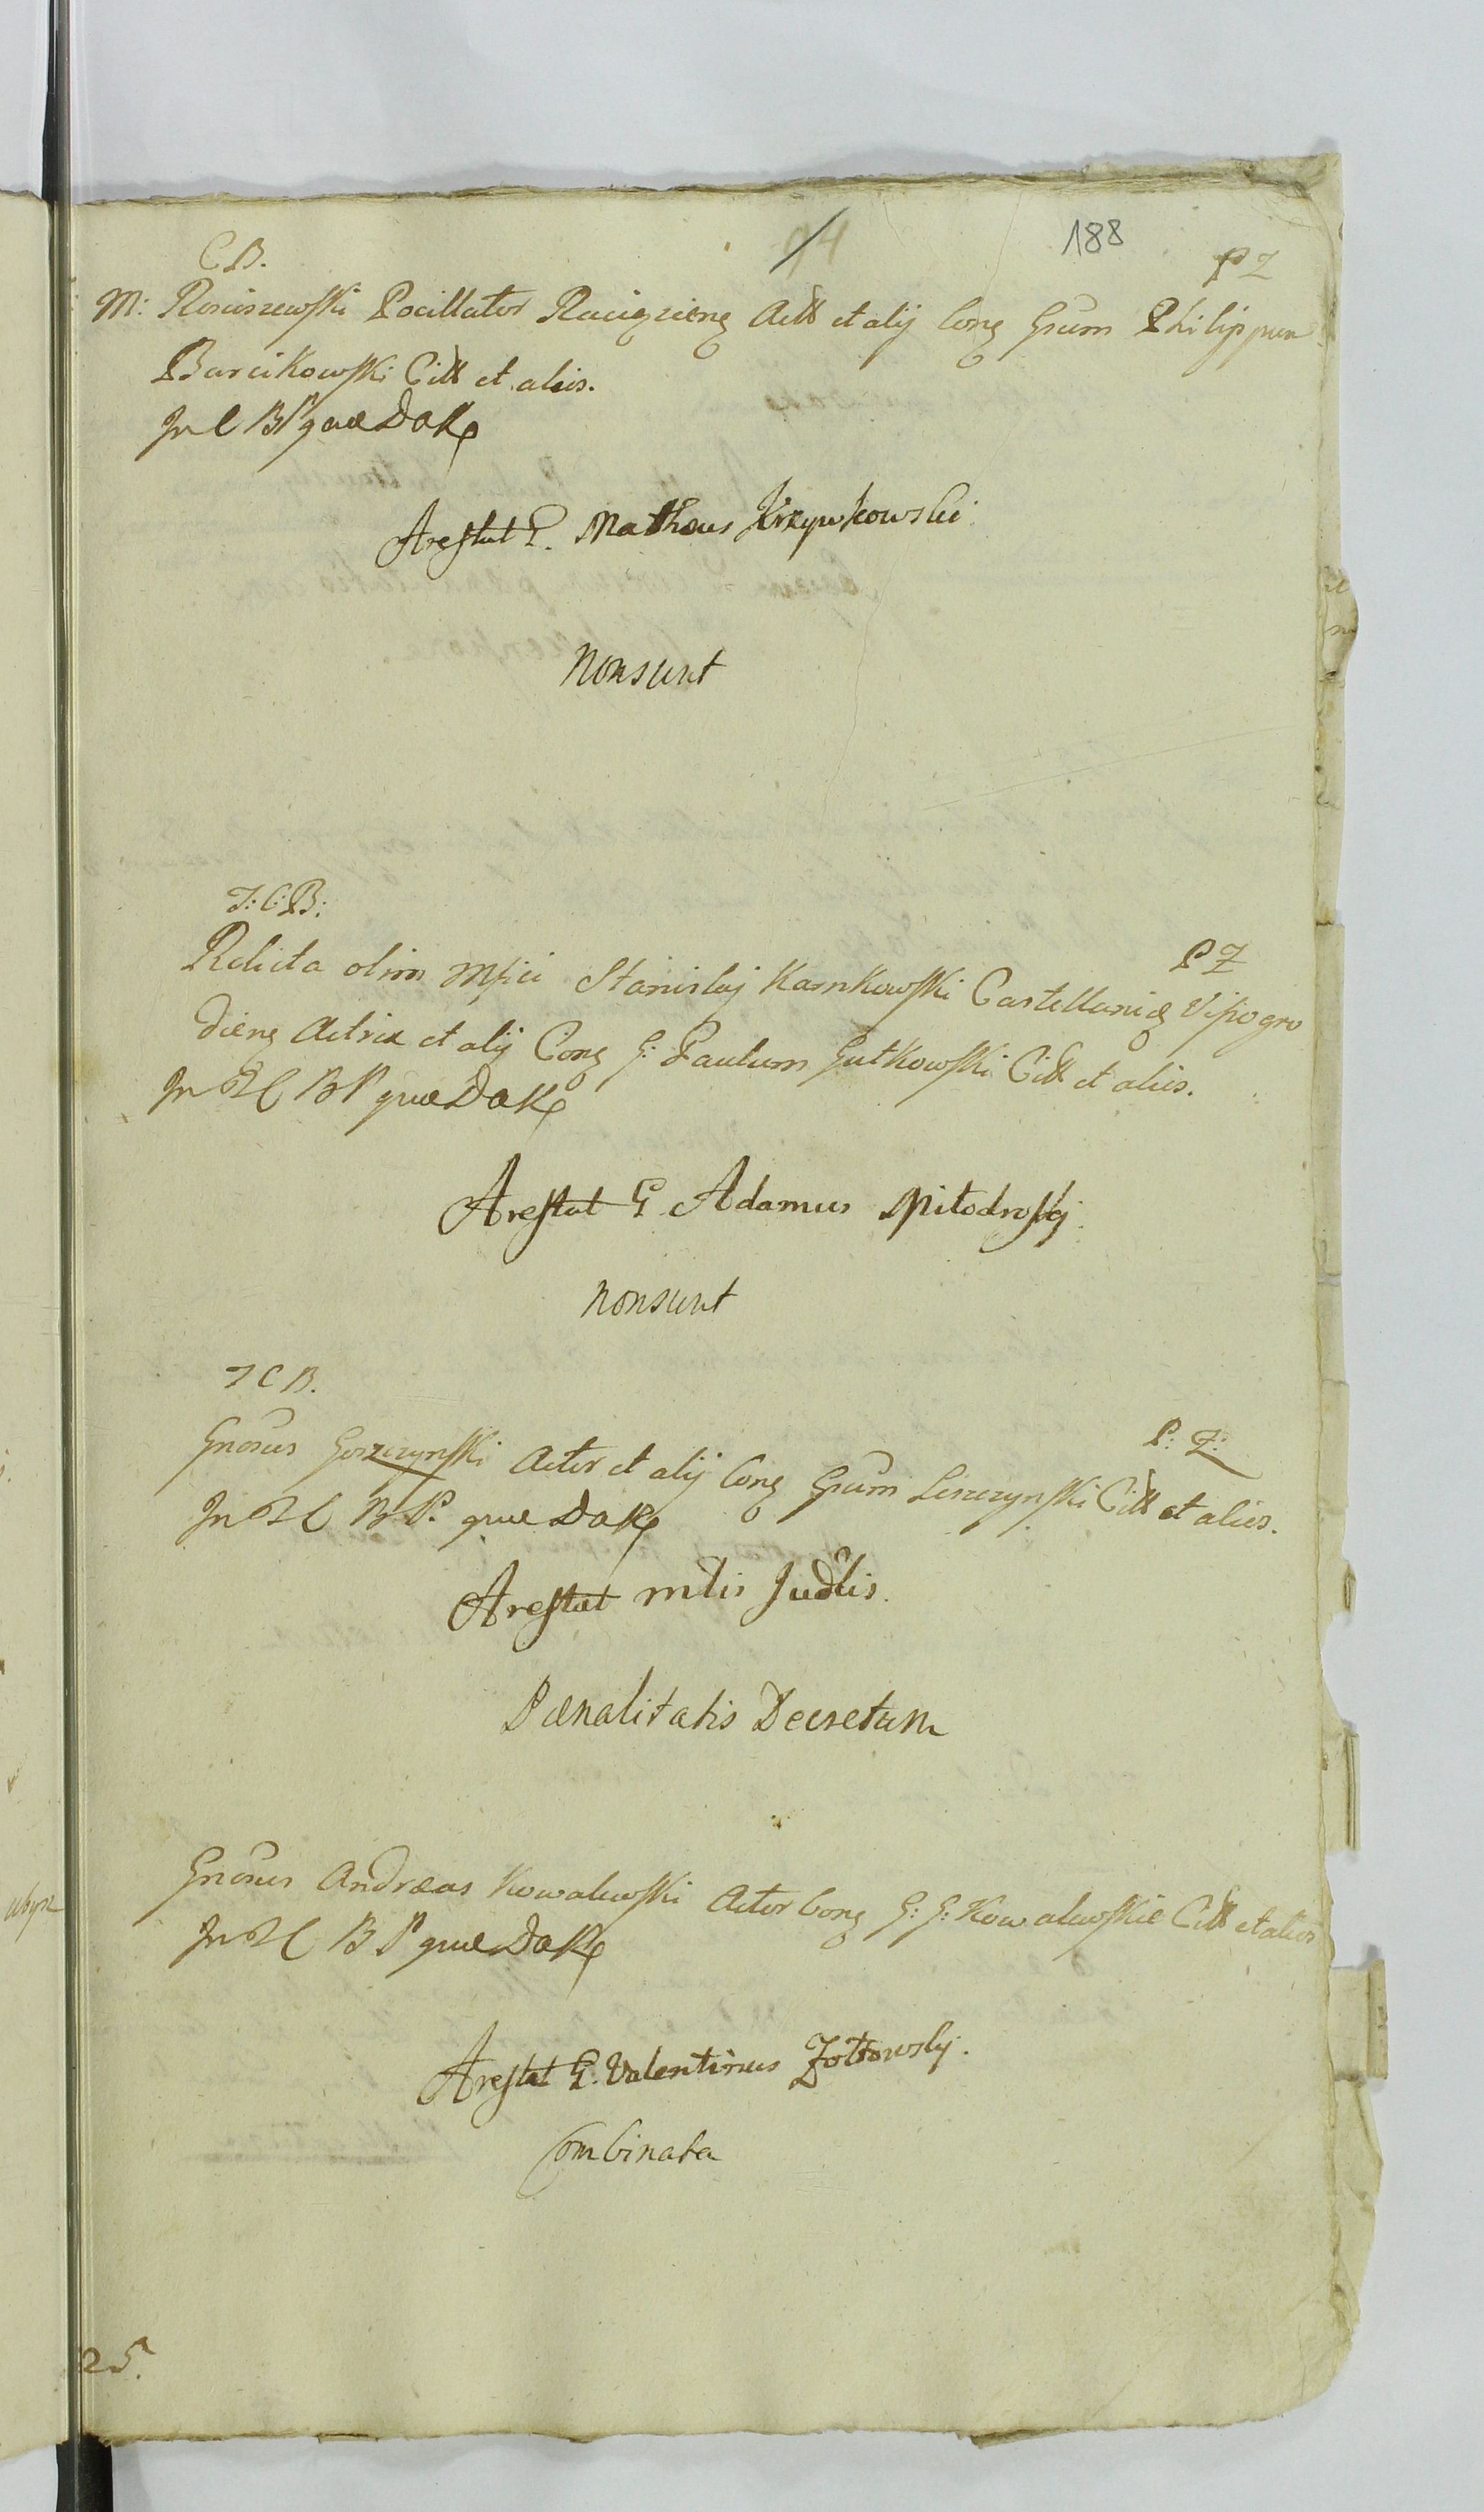 94 188
C B. P Z
M: Rosciszewski Pocillator Raciązieng Actt et alij Cong Grum Philippum
Barcikowski Citt et alios.
In C B P quae Dakp
Arestat G. Matheus Krzywkowski.
Nonsunt
T: C: B: P Z
Relicta olim Mfici Stanislaj Karnkowski Castellanid Visogro
dieng Actrix et alij Cong G: Paulum Gutkowski Citt et alios.
In T C B P quae Dakp
Arestat G Adamus Mitodroskj.
Nonsunt
T C B. P: Z:
Gnosus Gorzczynski Actor et alij Cong Grum Leszczynski Citt et alios.
In T C B P. quae Dakp
Arestat mtis Judlis.
Paenalitatis Decretum
Gnosus Andraeas Kowalewski Actor Cong G: G: Kowalewskie Citt et alios
In T C B P quae Dakp
Arestat G. Valentinus Zottowskj.
Combinata
25.